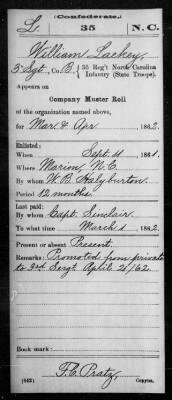 (Confederate.)
L. 35 N.C.
William Lackey
3" Sgt, Co. B, 35 Reg't North Carolina
Infantry (State Troops).
Appears on
Company Muster Roll
of the organization named above,
for Mar & Apr, 1862.
Enlisted:
When Sept. 4 1861.
Where Marion, N.C.
By whom W. B. Halyburton.
Period 12 months.
Last paid:
By whom Capt. Sinclair.
To what time March 1 1862.
Present or absent Present.
Remarks: Promoted from private
to 3rd Sergt April 21/62.
Book mark:
(642) F. C. Pratz,
Copyist.